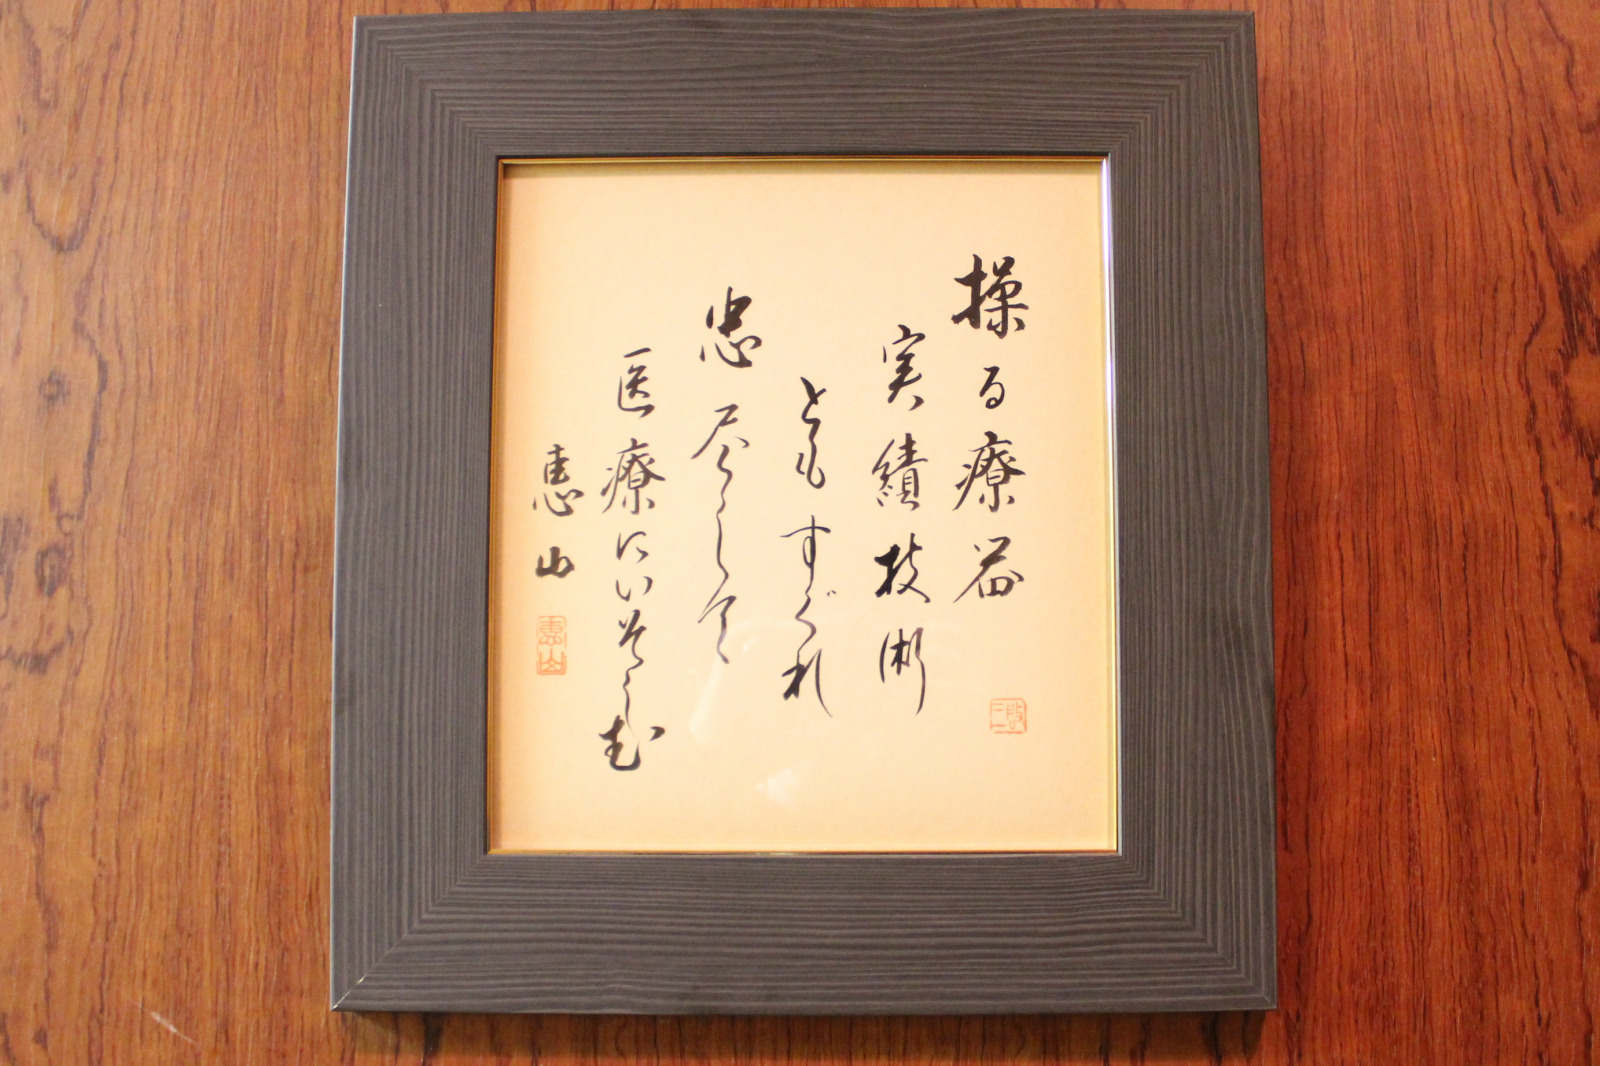 操る療器
実績技術
ともすぐれ
忠尽くして
医療にいそしむ
恵山
恵山